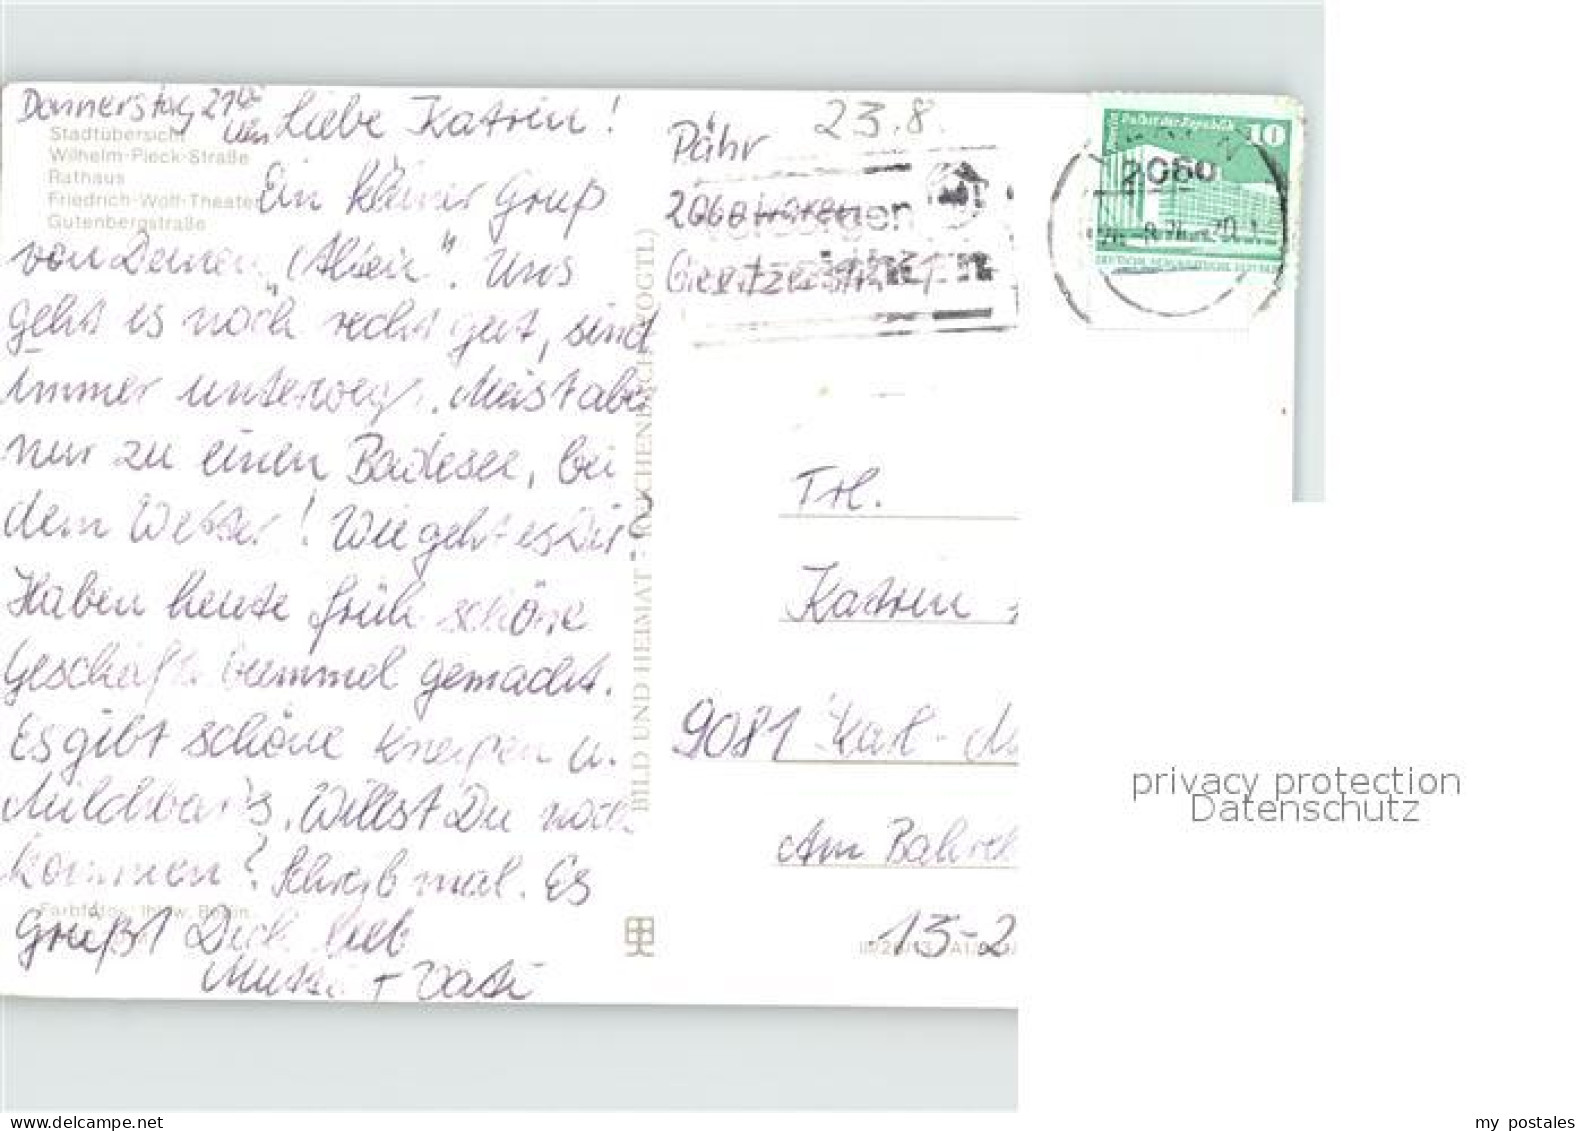 Donnerstag 21⁰⁰ Uhr
Liebe Katrin!
Stadtübersicht
Wilhelm-Pieck-Straße
Rathaus
Friedrich-Wolf-Theater
Gutenbergstraße
Ein kleiner Gruß
von Deinen „Alten“. Uns
geht es noch recht gut, sind
immer unterwegs. Meist aber
nur zu einen Badesee, bei
dem Wetter! Wie geht es Dir?
Haben heute früh schöne
Geschäftsbummel gemacht.
Es gibt schöne Kneipen u.
Milchbar's. Willst Du noch
kommen? Schreib mal. Es
Grüßt Dich lieb
Mutti + Vati
BILD UND HEIMAT · REICHENBACH (VOGTL)
23.8.
Pähr
2060 Waren
2060
Berlin Palast der Republik 10
DEUTSCHE DEMOKRATISCHE REPUBLIK
Frl.
Katrin
9081 Karl-M
Am Bahreb
13-2
privacy protection
Datenschutz
my postales